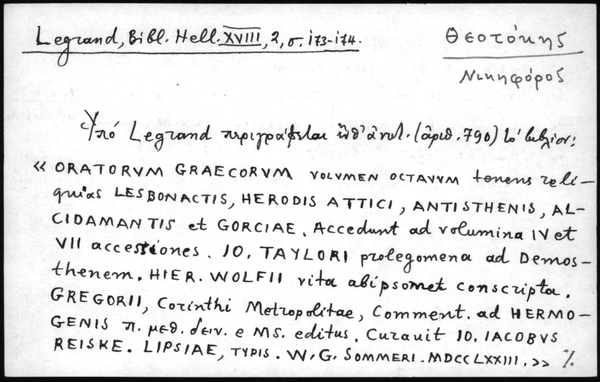 Legrand, Bibl. Hell. XVIII, 2, σ. 173-174.
Θεοτόκης
Νικηφόρος
Ὑπό Legrand περιγράφεται ὑπ' ἀριθ. (ἀριθ. 790) τό βιβλίον:
« ORATORVM GRAECORVM VOLVMEN OCTAVVM tenens reli-
quias LESBONACTIS, HERODIS ATTICI, ANTISTHENIS, AL-
CIDAMANTIS et GORGIAE. Accedunt ad volumina IV et
VII accessiones. IO. TAYLORI prolegomena ad Demos-
thenem. HIER. WOLFII vita abipsomet conscripta.
GREGORII, Corinthi Metropolitae, Comment. ad HERMO-
GENIS π. μεθ. δειν. e MS. editus. Curauit IO. IACOBVS
REISKE. LIPSIAE, TYPIS. W. G. SOMMERI. MDCCLXXIII. » ٪